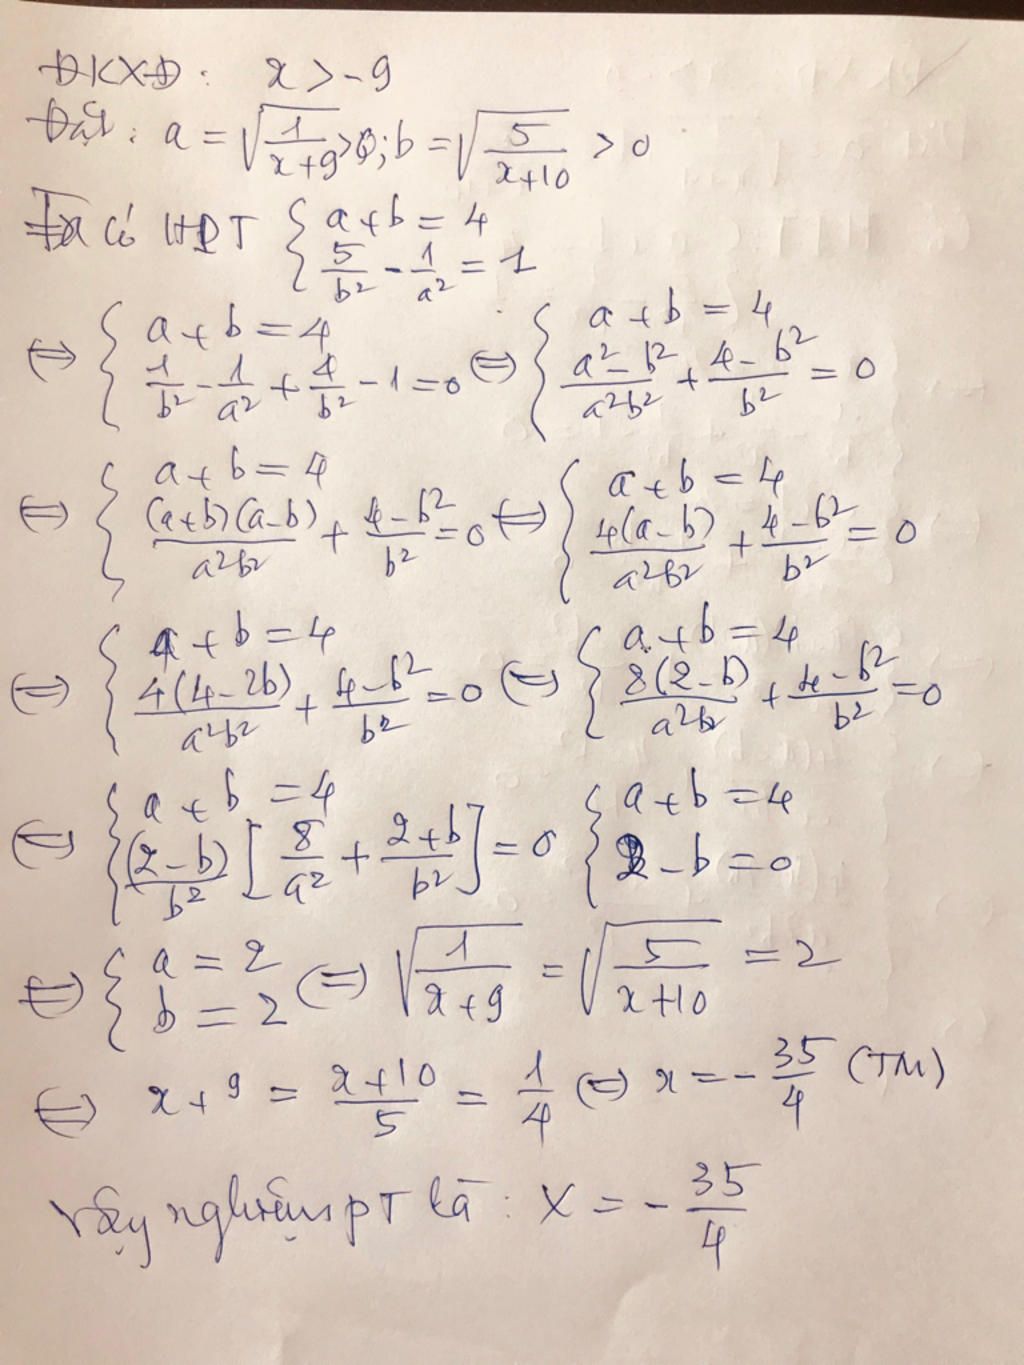 ĐKXĐ: x > -9
Đặt: a = √(1/(x+9)) > 0; b = √(5/(x+10)) > 0
Ta có HPT { a + b = 4
5/b² - 1/a² = 1
⇔ { a + b = 4 ⇔ { a + b = 4
1/b² - 1/a² + 4/b² - 1 = 0 (a² - b²)/(a²b²) + (4 - b²)/b² = 0
⇔ { a + b = 4 ⇔ { a + b = 4
(a+b)(a-b)/(a²b²) + (4 - b²)/b² = 0 4(a-b)/(a²b²) + (4 - b²)/b² = 0
⇔ { a + b = 4 ⇔ { a + b = 4
4(4-2b)/(a²b²) + (4-b²)/b² = 0 8(2-b)/(a²b²) + (4-b²)/b² = 0
⇔ { a + b = 4 { a + b = 4
(2-b)/b² [8/a² + (2+b)/b²] = 0 2 - b = 0
⇔ { a = 2 ⇔ √(1/(x+9)) = √(5/(x+10)) = 2
b = 2
⇔ x + 9 = (x+10)/5 = 1/4 ⇔ x = -35/4 (TM)
Vậy nghiệm PT là: X = -35/4